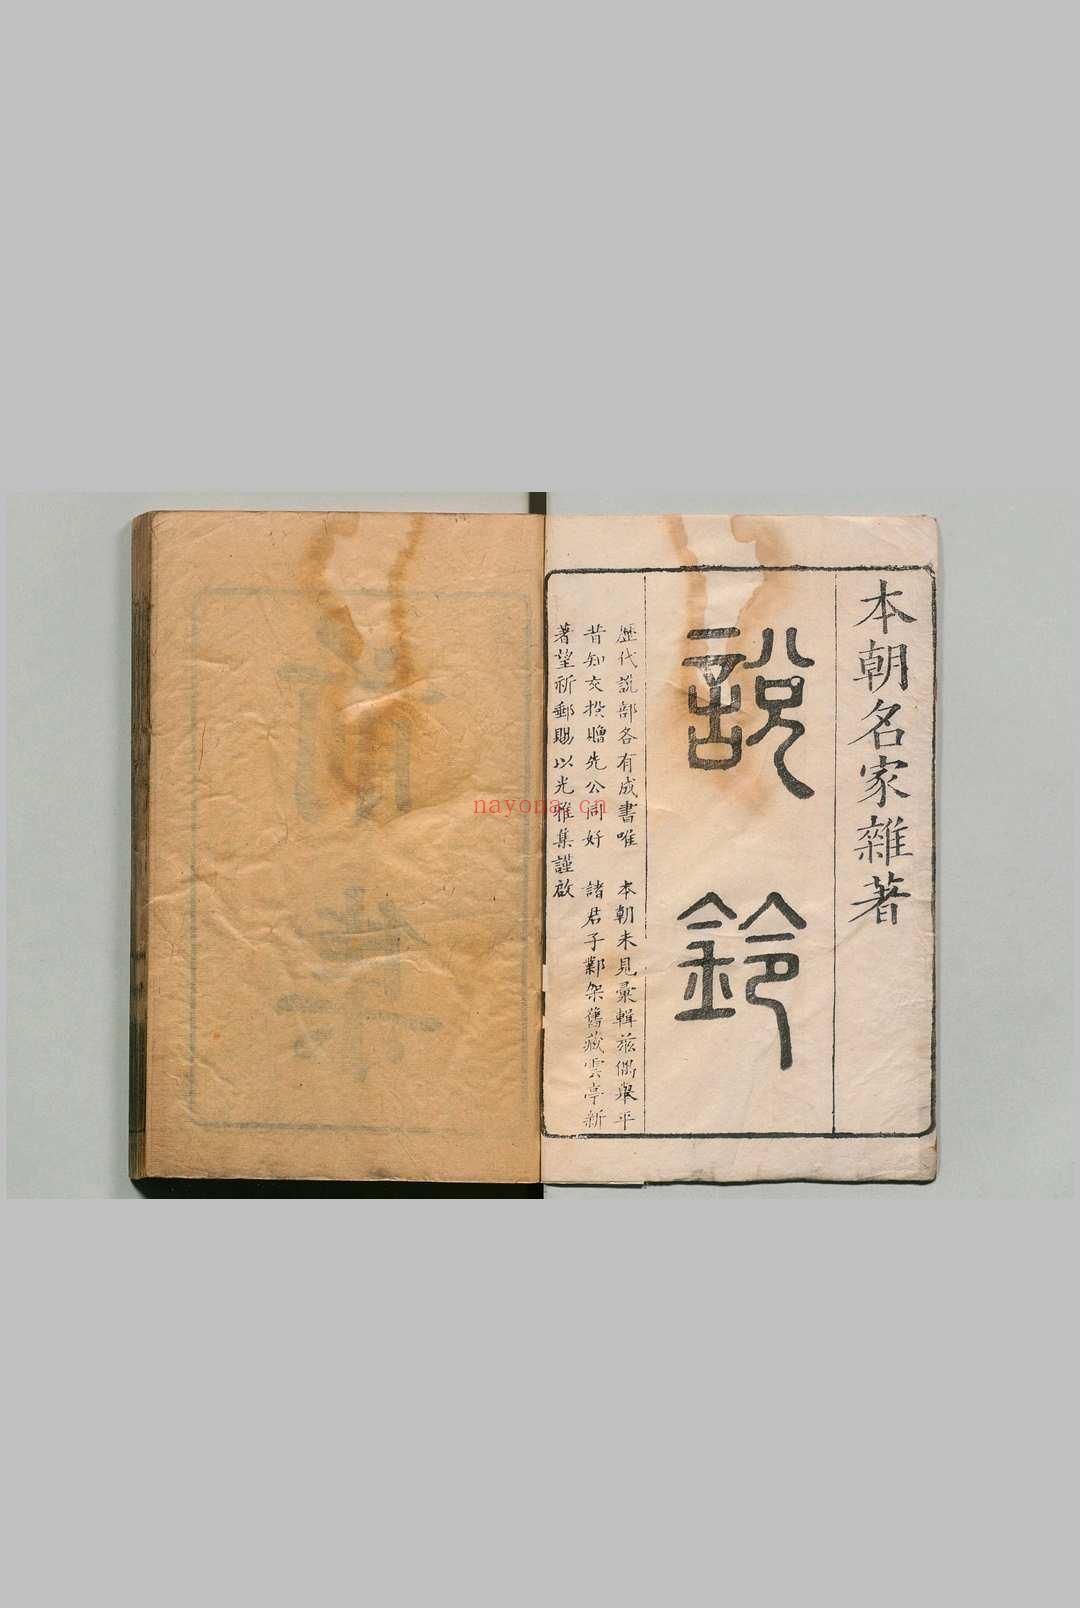 本朝名家雜著
說鈴
歷代說部各有成書唯　本朝未見彙輯茲偶舉平
昔知交投贈先公同好　諸君子鄴架舊藏雲亭新
著望祈郵賜以光雅集謹啟
nayona.cn